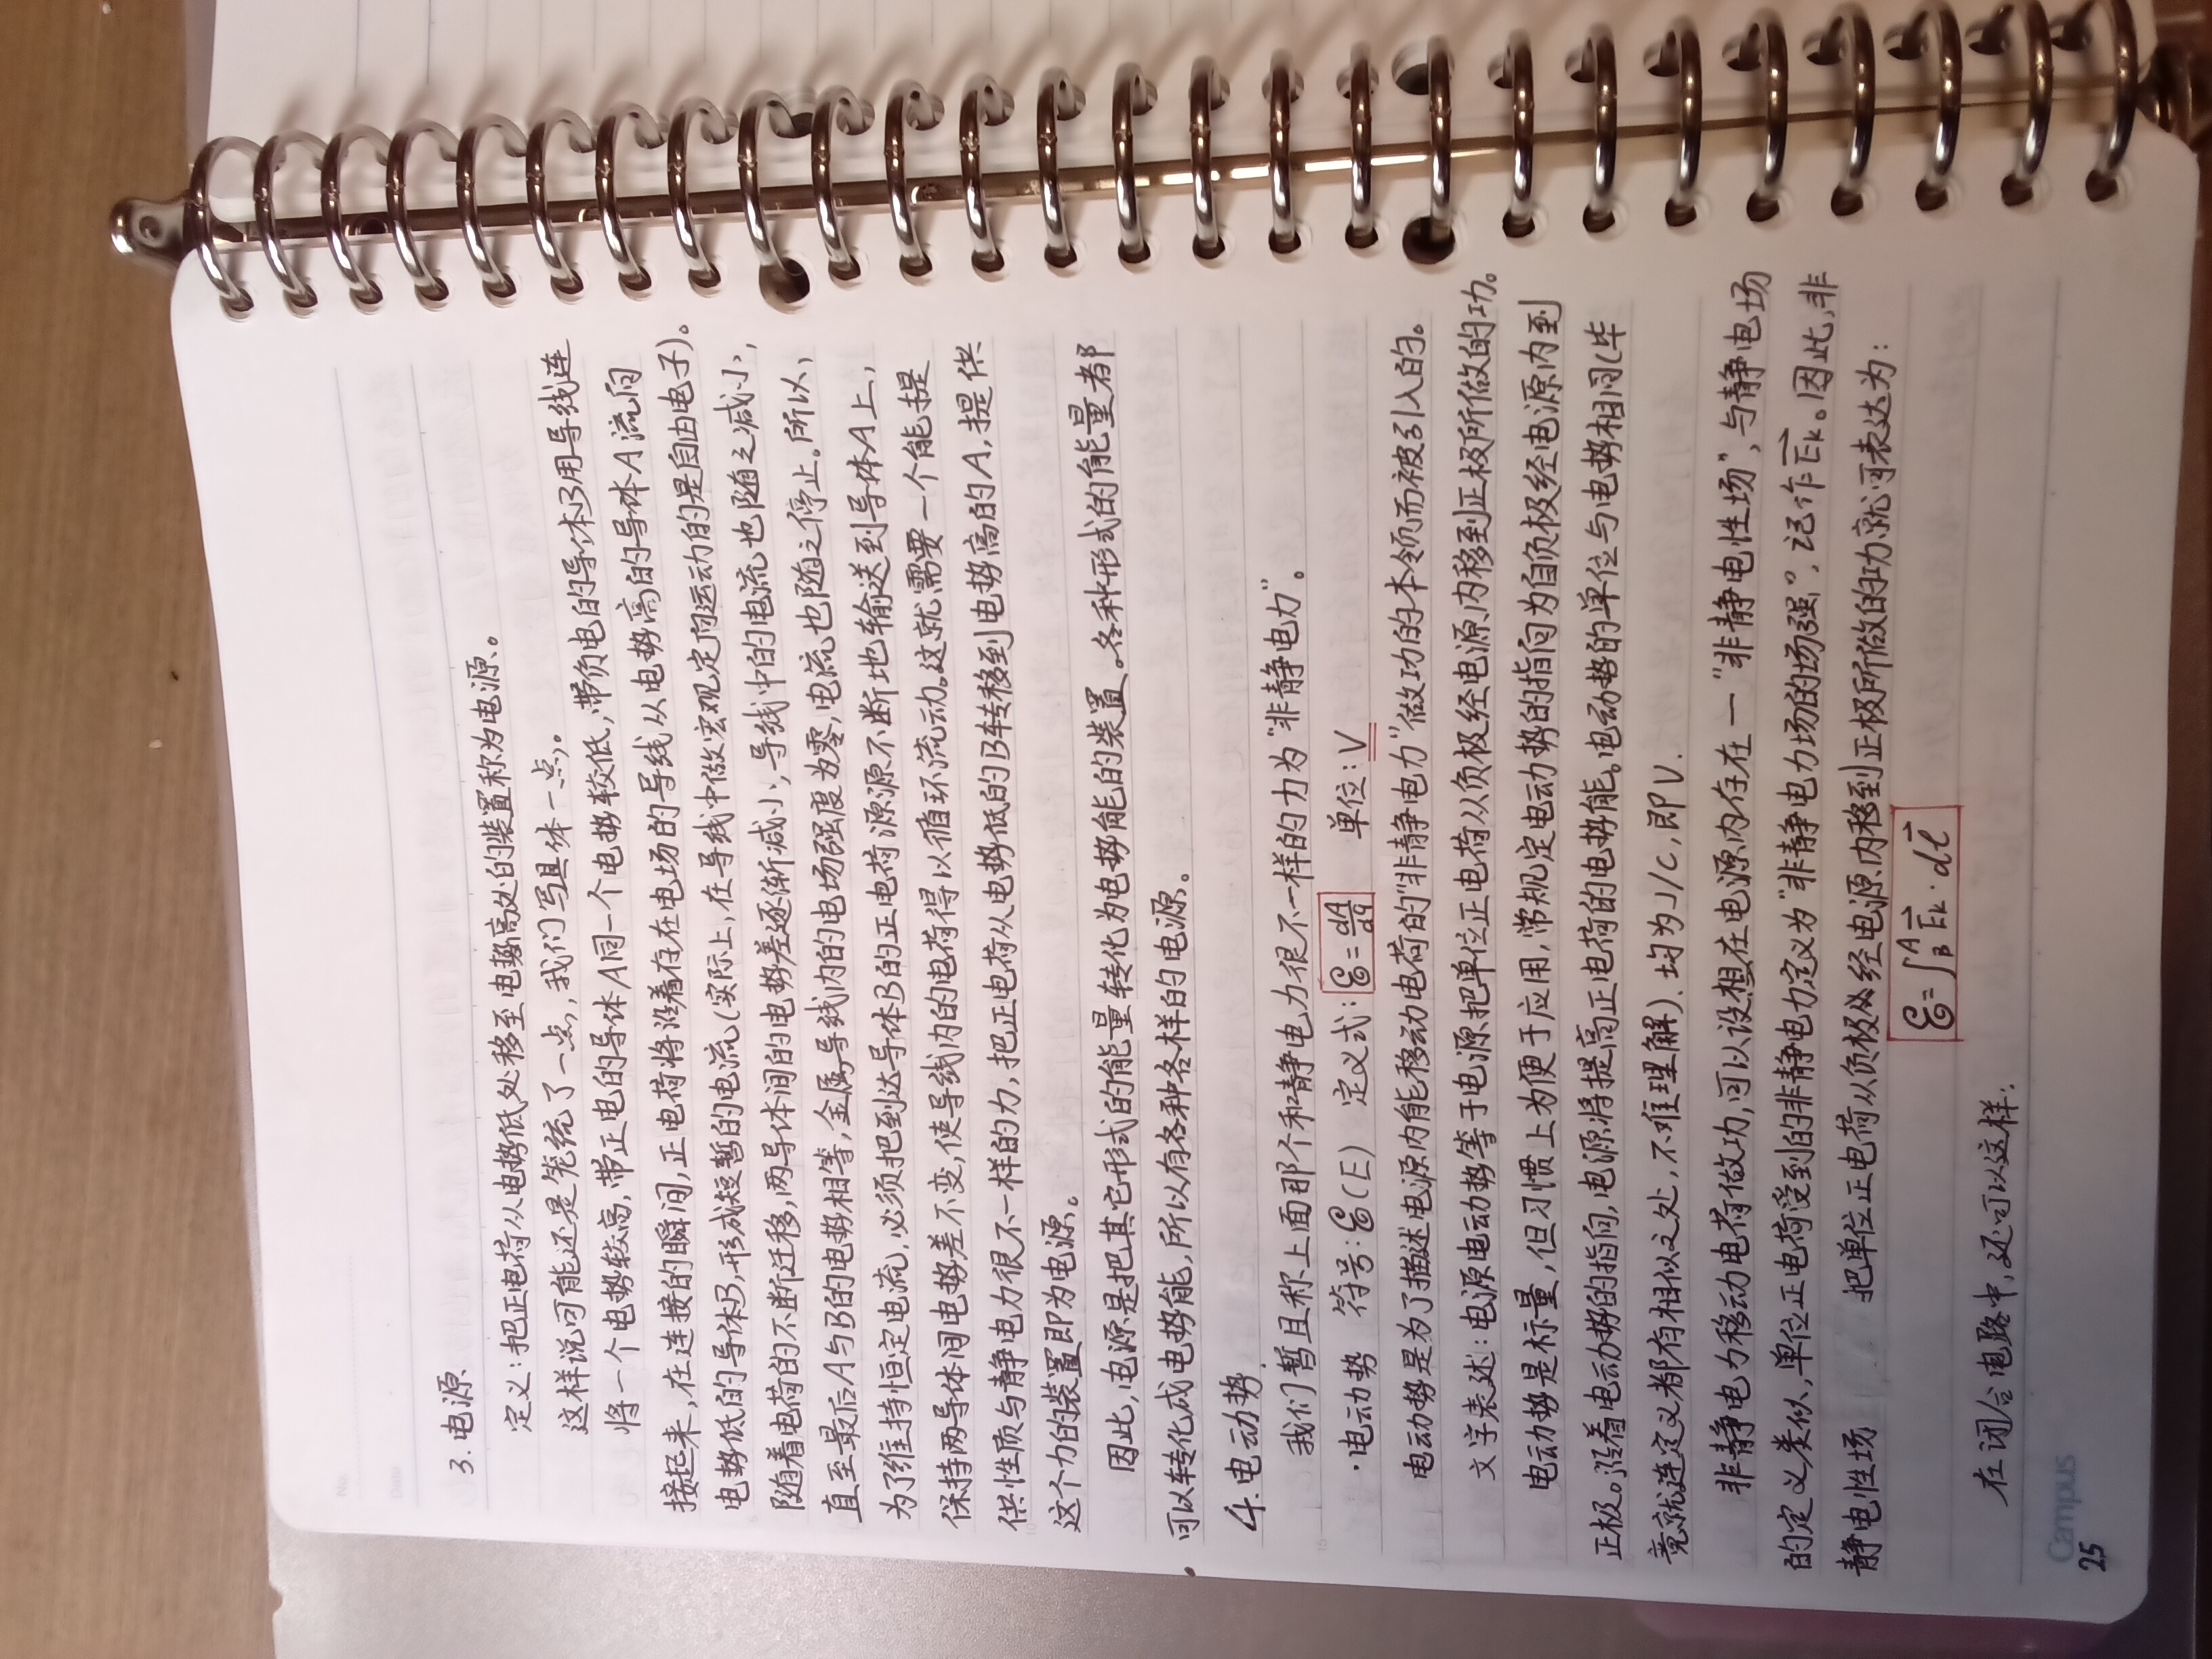 No.
Date
3.电源
定义:把正电荷从电势低处移至电势高处的装置称为电源。
这样说可能还是笼统了一点,我们写具体一点。
将一个电势较高,带正电的导体A同一个电势较低,带负电的导体B用导线连
接起来,在连接的瞬间,正电荷将沿着存在电场的导线从电势高的导体A流向
电势低的导体B,形成短暂的电流(实际上,在导线中做宏观定向运动的是自由电子)。
随着电荷的不断迁移,两导体间的电势差逐渐减小,导线中的电流也随之减小,
直至最后A与B的电势相等,金属导线内的电场强度为零,电流也随之停止。所以,
为了维持恒定电流,必须把到达导体B的正电荷源源不断地输送到导体A上,
保持两导体间电势差不变,使导线内的电荷得以循环流动。这就需要一个能提
供性质与静电力很不一样的力,把正电荷从电势低的B转移到电势高的A,提供
这个力的装置即为电源。
因此,电源是把其它形式的能量转化为电势能的装置。各种形式的能量都
可以转化成电势能,所以有各种各样的电源。
4.电动势
我们暂且称上面那个和静电力很不一样的力为“非静电力”。
·电动势 符号:ℰ(E) 定义式:ℰ=dA/dq 单位:V
电动势是为了描述电源内能移动电荷的“非静电力”做功的本领而被引入的。
文字表述:电源电动势等于电源把单位正电荷从负极经电源内移到正极所做的功。
电动势是标量,但习惯上为便于应用,常规定电动势的指向为自负极经电源内到
正极。沿着电动势的指向,电源将提高正电荷的电势能。电动势的单位与电势相同(毕
竟就连定义都有相似之处,不难理解)、均为J/C,即V.
非静电力移动电荷做功,可以设想在电源内存在一“非静电性场”,与静电场
的定义类似,单位正电荷受到的非静电力定义为“非静电力场的场强”,记作E⃗k。因此,非
静电性场 把单位正电荷从负极经电源内移到正极所做的功就可表达为:
ℰ=∫_B^A E⃗k·dl⃗
在闭合电路中,还可以这样:
Campus
25